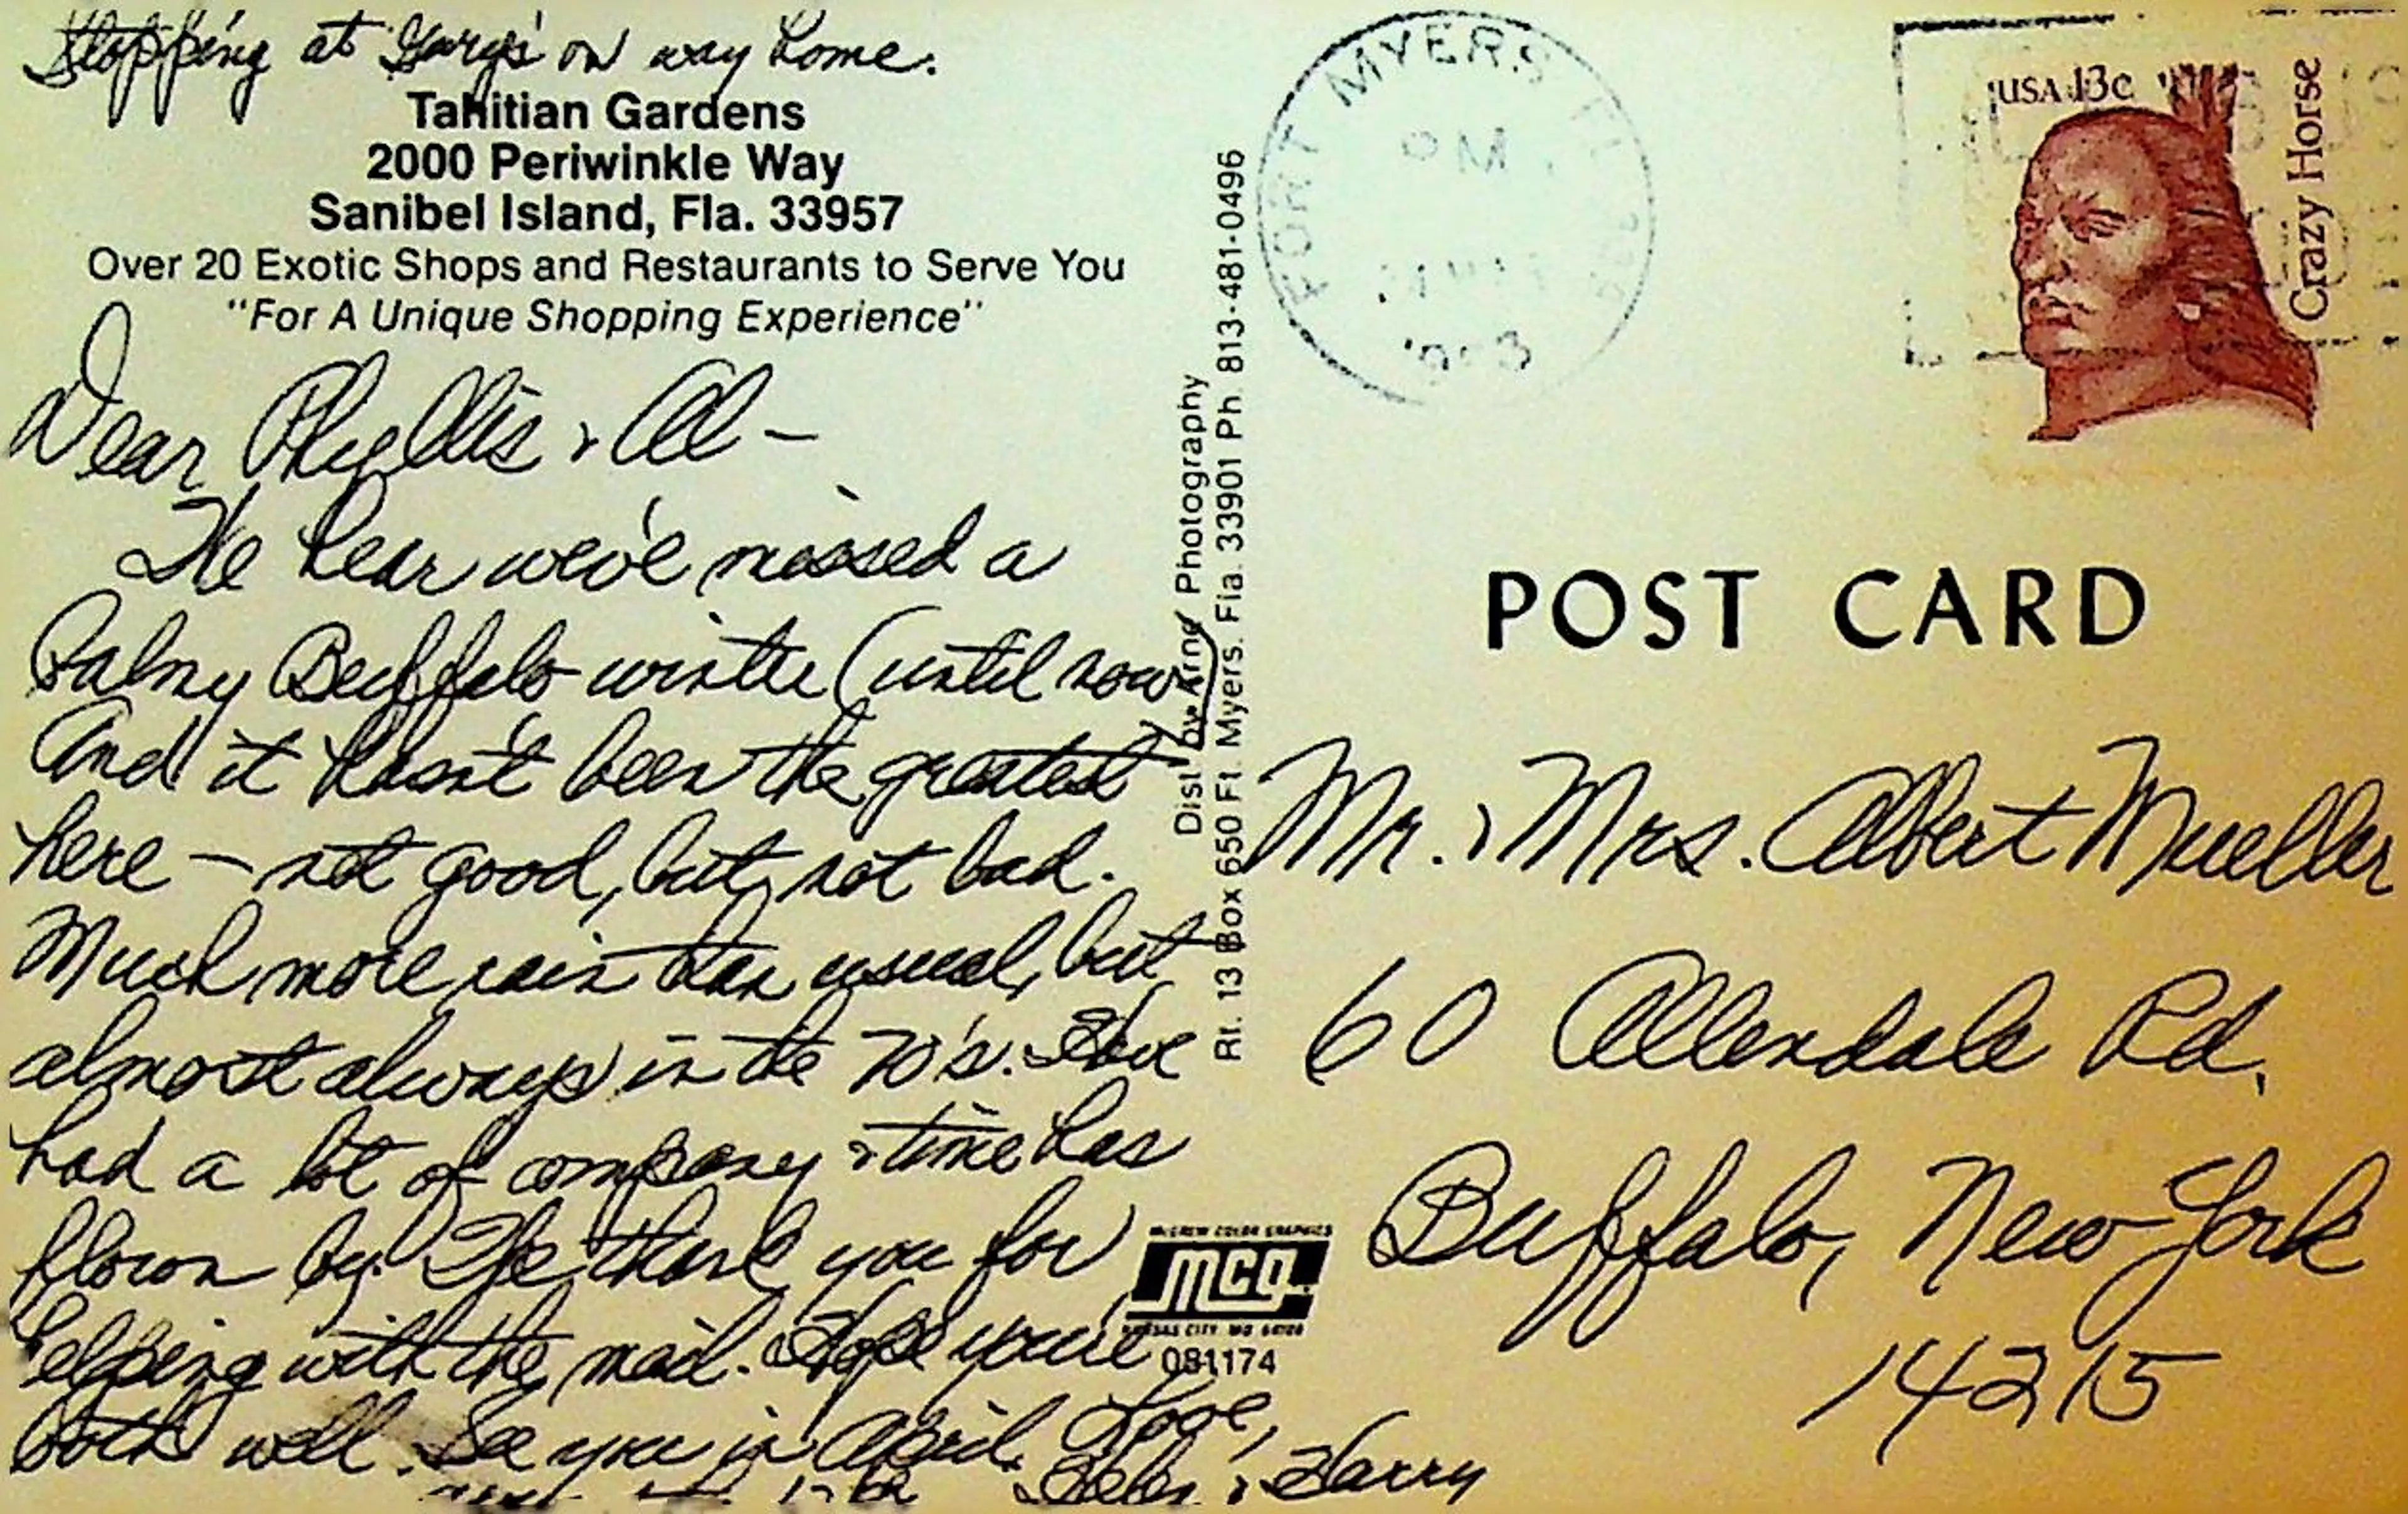 Stopping at Gary's on way home.
Tahitian Gardens
2000 Periwinkle Way
Sanibel Island, Fla. 33957
Over 20 Exotic Shops and Restaurants to Serve You
"For A Unique Shopping Experience"
Dear Phyllis & Al —
We hear we've missed a
balmy Buffalo winter (until now)
And it hasn't been the greatest
here — not good, but not bad.
Much more rain than usual, but
almost always in the 70's. Have
had a lot of company & time has
flown by. We thank you for
helping with the mail. Hope you're
both well. See you in April.
Love,
Helen & Harry
Dist. by Arno Photography
Rt. 13 Box 650 Ft. Myers. Fla. 33901 Ph. 813-481-0496
McGREW COLOR GRAPHICS
mcg
KANSAS CITY, MO. 64108
081174
FORT MYERS FL
PM
USA 13c
Crazy Horse
POST CARD
Mr. & Mrs. Albert Mueller
60 Allendale Rd.
Buffalo, New York
14215